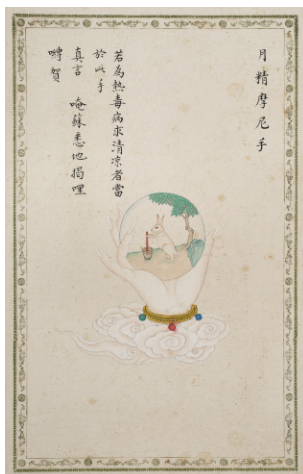 月精摩尼手
若為熱毒病求清凉者當
於此手
真言 唵蘇悉地揭哩
嚩賀